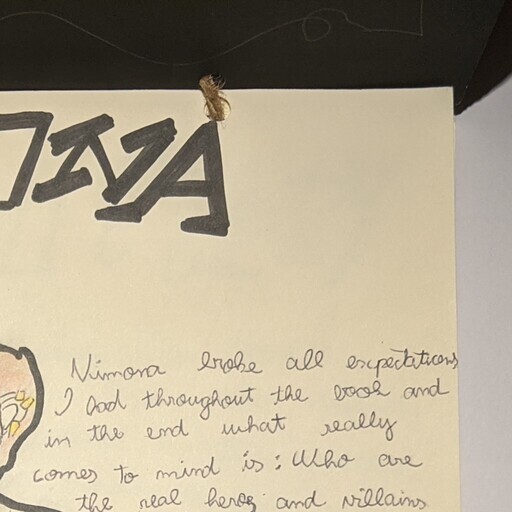 ONA
Nimona broke all expectations
I had throughout the book and
in the end what really
comes to mind is: Who are
the real heros and villains